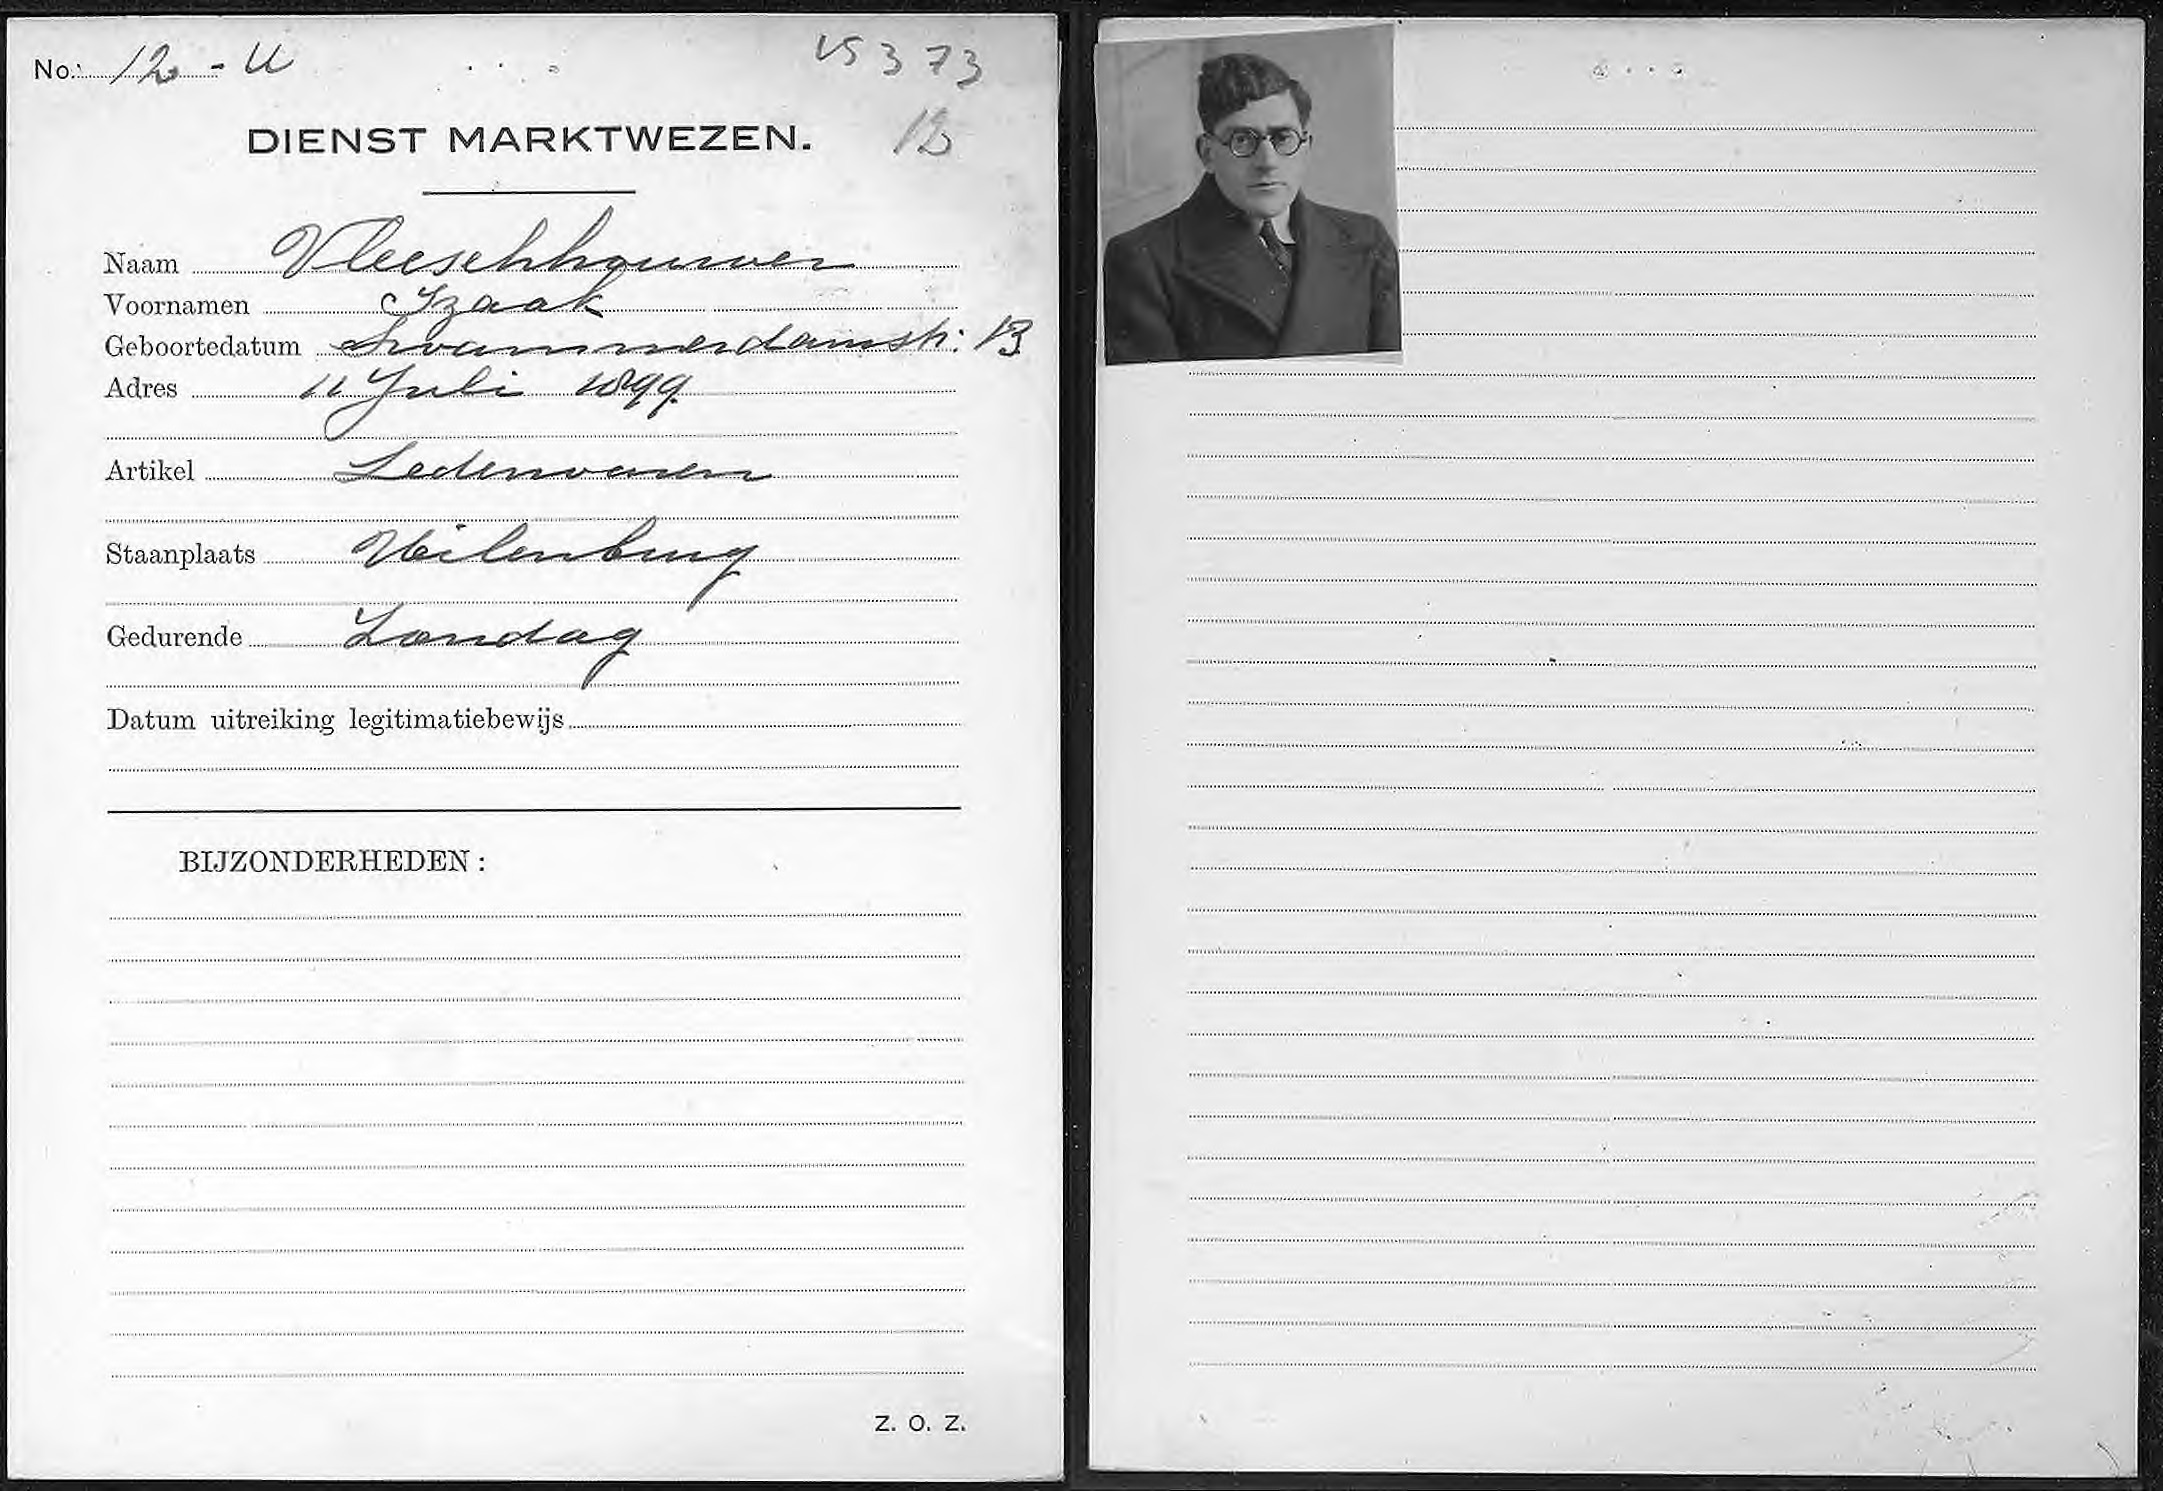 No. 12 - U
VS 373
DIENST MARKTWEZEN.
12
Naam Vleeschhouwer
Voornamen Izaak
Geboortedatum Swammerdamstr. 13
Adres 11 Juli 1899
Artikel Lederwaren
Staanplaats Uilenburg
Gedurende Zondag
Datum uitreiking legitimatiebewijs
BIJZONDERHEDEN:
Z. O. Z.